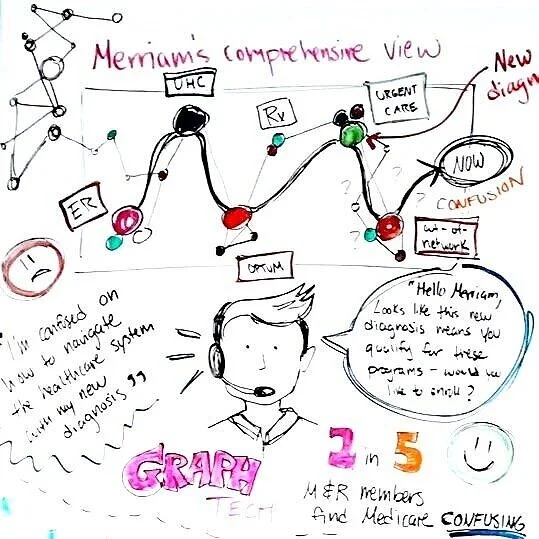 Merriam's comprehensive view
UHC
Rx
URGENT
CARE
New
diagn
ER
NOW
CONFUSION
?
?
?
?
out-of-
network
OPTUM
"I'm confused on
how to navigate
the healthcare system
with my new
diagnosis"
"Hello Merriam,
Looks like this new
diagnosis means you
qualify for these
programs - would you
like to enroll?
GRAPH
TECH
2 in 5
M&R members
find Medicare CONFUSING